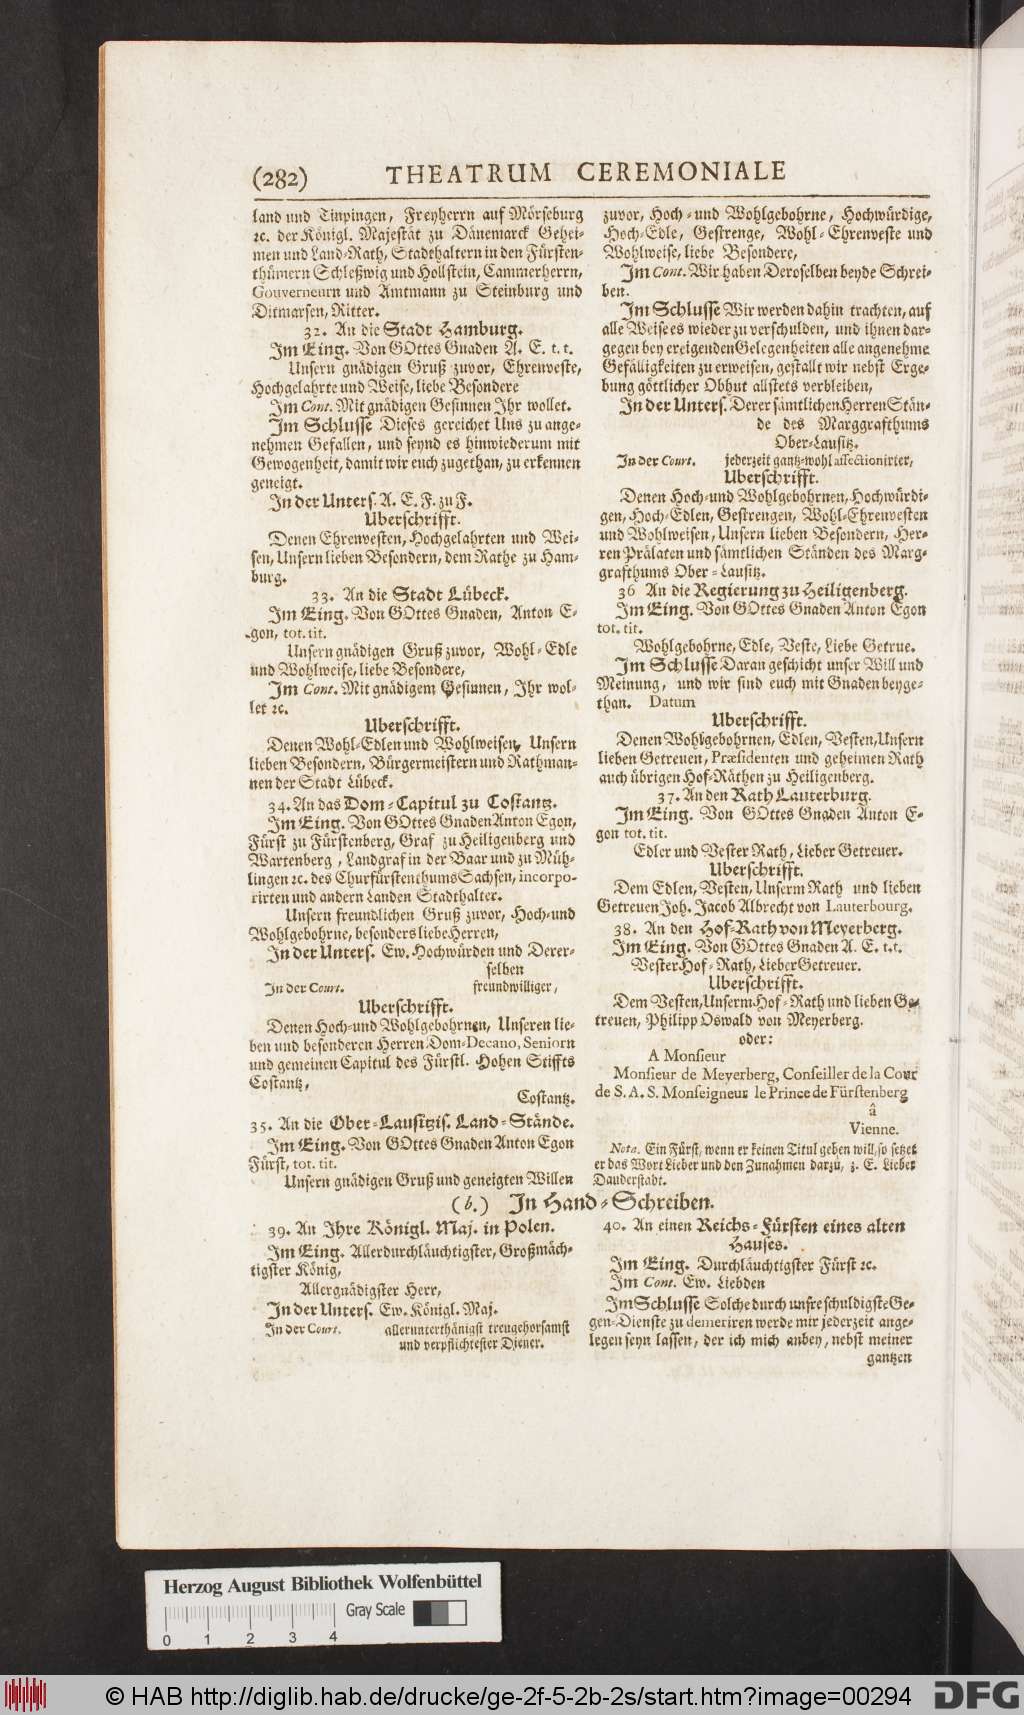 (282) THEATRUM CEREMONIALE
land und Tinpingen, Freyherrn auf Mörseburg
ꝛc. der Königl. Majestät zu Dänemarck Gehei-
men und Land-Rath, Stadthaltern in den Fürsten-
thümern Schleßwig und Hollstein, Cammerherrn,
Gouverneurn und Amtmann zu Steinburg und
Ditmarsen, Ritter.
32. An die Stadt Hamburg.
Im Eing. Von GOttes Gnaden A. E. t. t.
Unsern gnädigen Gruß zuvor, Ehrenveste,
Hochgelahrte und Weise, liebe Besondere
Im Cont. Mit gnädigen Gesinnen Ihr wollet.
Im Schlusse Dieses gereichet Uns zu ange-
nehmen Gefallen, und seynd es hinwiederum mit
Gewogenheit, damit wir euch zugethan, zu erkennen
geneigt.
In der Unters. A. E. F. zu F.
Uberschrifft.
Denen Ehrenvesten, Hochgelahrten und Wei-
sen, Unsern lieben Besondern, dem Rathe zu Ham-
burg.
33. An die Stadt Lübeck.
Im Eing. Von GOttes Gnaden, Anton E-
gon, tot. tit.
Unsern gnädigen Gruß zuvor, Wohl-Edle
und Wohlweise, liebe Besondere,
Im Cont. Mit gnädigem Gesinnen, Ihr wol-
let ꝛc.
Uberschrifft.
Denen Wohl-Edlen und Wohlweisen, Unsern
lieben Besondern, Bürgermeistern und Rathman-
nen der Stadt Lübeck.
34. An das Dom-Capitul zu Costantz.
Im Eing. Von GOttes Gnaden Anton Egon,
Fürst zu Fürstenberg, Graf zu Heiligenberg und
Wartenberg, Landgraf in der Baar und zu Müh-
lingen ꝛc. des Churfürstenthums Sachsen, incorpo-
rirten und andern Landen Stadthalter.
Unsern freundlichen Gruß zuvor, Hoch-und
Wohlgebohrne, besonders liebe Herren,
In der Unters. Ew. Hochwürden und Derer-
selben
In der Court. freundwilliger,
Uberschrifft.
Denen Hoch-und Wohlgebohrnen, Unseren lie-
ben und besonderen Herren Dom-Decano, Seniorn
und gemeinen Capitul des Fürstl. Hohen Stiffts
Costantz,
Costantz.
35. An die Ober-Lausitzis. Land-Stände.
Im Eing. Von GOttes Gnaden Anton Egon
Fürst, tot. tit.
Unsern gnädigen Gruß und geneigten Willen
zuvor, Hoch-und Wohlgebohrne, Hochwürdige,
Hoch-Edle, Gestrenge, Wohl-Ehrenveste und
Wohlweise, liebe Besondere,
Im Cont. Wir haben Deroselben beyde Schrei-
ben.
Im Schlusse Wir werden dahin trachten, auf
alle Weise es wieder zu verschulden, und ihnen dar-
gegen bey ereigenden Gelegenheiten alle angenehme
Gefälligkeiten zu erweisen, gestallt wir nebst Erge-
bung göttlicher Obhut allstets verbleiben,
In der Unters. Derer sämtlichen Herren Stän-
de des Marggrafthums
Ober-Lausitz.
In der Court. jederzeit gantz-wohl affectionirter,
Uberschrifft.
Denen Hoch-und Wohlgebohrnen, Hochwürdi-
gen, Hoch-Edlen, Gestrengen, Wohl-Ehrenvesten
und Wohlweisen, Unsern lieben Besondern, Her-
ren Prälaten und sämtlichen Ständen des Marg-
grafthums Ober-Lausitz.
36 An die Regierung zu Heiligenberg.
Im Eing. Von GOttes Gnaden Anton Egon
tot. tit.
Wohlgebohrne, Edle, Veste, Liebe Getrue.
Im Schlusse Daran geschicht unser Will und
Meinung, und wir sind euch mit Gnaden beyge-
than. Datum
Uberschrifft.
Denen Wohlgebohrnen, Edlen, Vesten, Unsern
lieben Getreuen, Præsidenten und geheimen Rath
auch übrigen Hof-Räthen zu Heiligenberg.
37. An den Rath Lauterburg.
Im Eing. Von GOttes Gnaden Anton E-
gon tot. tit.
Edler und Vester Rath, Lieber Getreuer.
Uberschrifft.
Dem Edlen, Vesten, Unserm Rath und lieben
Getreuen Joh. Jacob Albrecht von Lauterbourg.
38. An den Hof-Rath von Meyerberg.
Im Eing. Von GOttes Gnaden A. E. t. t.
Vester Hof-Rath, Lieber Getreuer.
Uberschrifft.
Dem Vesten, Unserm Hof-Rath und lieben Ge-
treuen, Philipp Oswald von Meyerberg.
oder:
A Monsieur
Monsieur de Meyerberg, Conseiller de la Cour
de S. A. S. Monseigneur le Prince de Fürstenberg
â
Vienne.
Nota. Ein Fürst, wenn er keinen Titul geben will, so setzet
er das Wort Lieber und den Zunahmen darzu, z. E. Lieber
Dauderstadt.
(b.) In Hand-Schreiben.
39. An Ihre Königl. Maj. in Polen.
Im Eing. Allerdurchläuchtigster, Großmäch-
tigster König,
Allergnädigster Herr,
In der Unters. Ew. Königl. Maj.
In der Court. allerunterthänigst treugehorsamst
und verpflichtester Diener.
40. An einen Reichs-Fürsten eines alten
Hauses.
Im Eing. Durchläuchtigster Fürst ꝛc.
Im Cont. Ew. Liebden
Im Schlusse Solche durch unsre schuldigste Ge-
gen-Dienste zu demeriren werde mir jederzeit ange-
legen seyn lassen, der ich mich anbey, nebst meiner
gantzen
Herzog August Bibliothek Wolfenbüttel
Gray Scale
0 1 2 3 4
© HAB http://diglib.hab.de/drucke/ge-2f-5-2b-2s/start.htm?image=00294
DFG